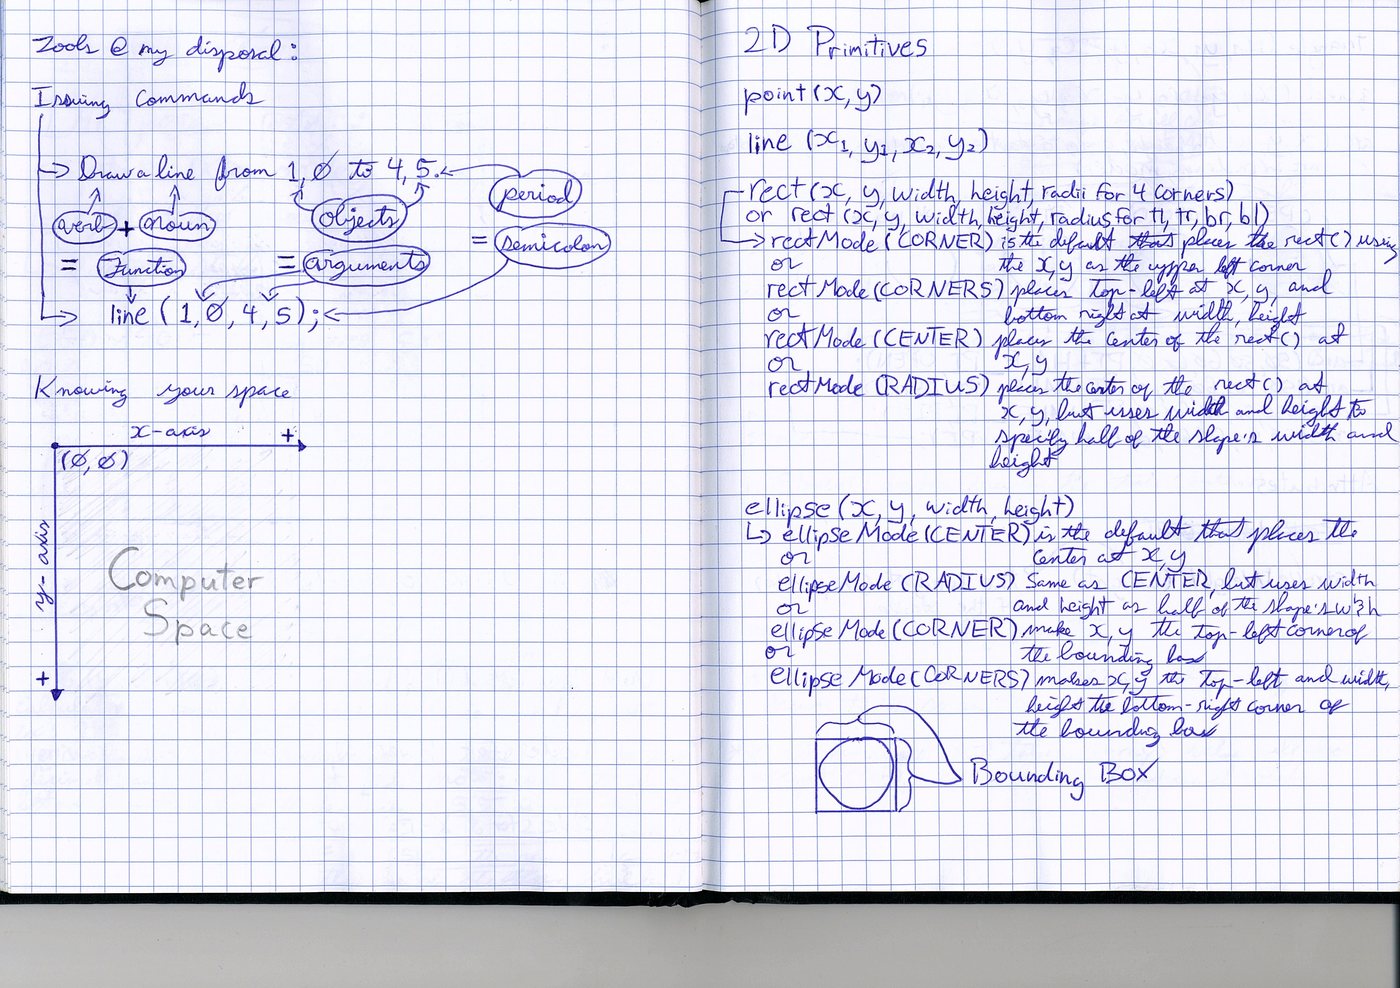 Tools @ my disposal:
Issuing Commands
Draw a line from 1,0 to 4,5.
period
verb + noun
objects
= semicolon
= Function
= arguments
line (1,0,4,5);
Knowing your space
x-axis +
(0,0)
y-axis
+
Computer
Space
2D Primitives
point (x, y)
line (x1, y1, x2, y2)
rect (x, y, width, height, radii for 4 corners)
or rect (x, y, width, height, radius for tl, tr, br, bl)
rectMode (CORNER) is the default that places the rect() using
or the x,y as the upper left corner
rectMode (CORNERS) places top-left at x, y, and
or bottom right at width, height
rectMode (CENTER) places the center of the rect() at
or x, y
rectMode (RADIUS) places the center of the rect() at
x, y, but uses width and height to
specify half of the shape's width and
height
ellipse (x, y, width, height)
ellipseMode (CENTER) is the default that places the
or center at x, y
ellipseMode (RADIUS) Same as CENTER, but uses width
or and height as half of the shape's w & h
ellipseMode (CORNER) make x, y the top-left corner of
or the bounding box
ellipseMode (CORNERS) makes x, y the top-left and width,
height the bottom-right corner of
the bounding box
Bounding Box